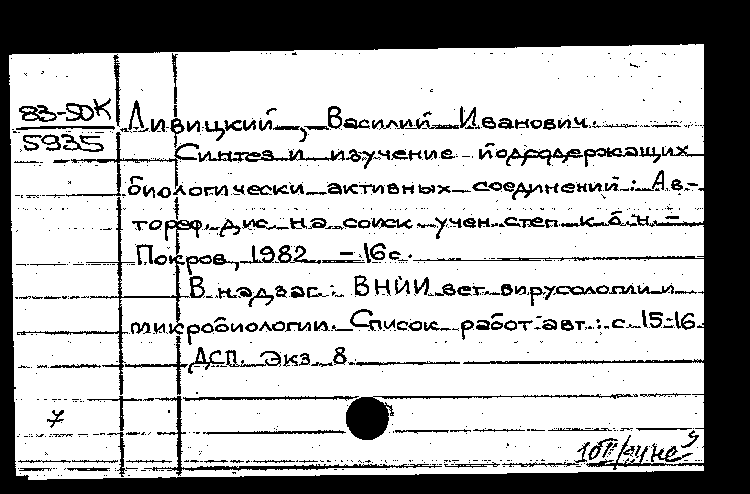 83-5ДК
5935
Ливицкий, Василий Иванович.
Синтез и изучение йодсодержащих
биологически активных соединений: Ав-
тореф. дис. на соиск. учен. степ. к.б.н. –
Покров, 1982. – 16 с.
В надзаг.: ВНИИ вет. вирусологии и
микробиологии. Список работ авт.: с. 15-16
ДСП. Экз. 8.
7